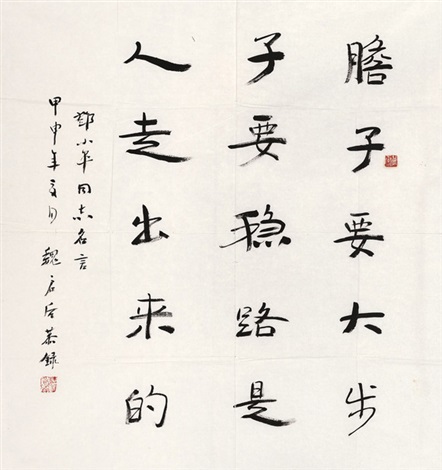 膽子要大步
子要穩路是
人走出來的
鄧小平同志名言
甲申年夏月 魏启后恭錄